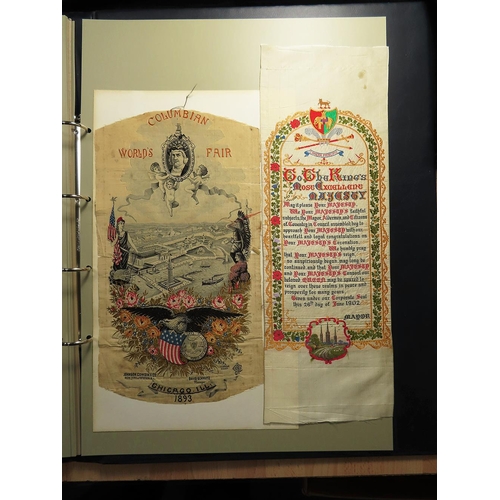 COLUMBIAN
WORLD'S FAIR
CHICAGO. ILL.
1893
To The King's
Most Excellent
MAJESTY
May it please Your MAJESTY.
We Your MAJESTY'S faithful
subjects the Mayor, Aldermen, and Citizens
of Coventry in Council assembled beg to
approach Your MAJESTY with our
heartfelt and loyal congratulations on
Your MAJESTY'S Coronation.
We humbly pray
that Your MAJESTY'S reign,
so auspiciously begun, may long be
continued, and that Your MAJESTY
and Your MAJESTY'S Consort, our
beloved QUEEN may be spared to
reign over these realms in peace and
prosperity for many years.
Given under our Corporate Seal
this 26th day of June 1902.
MAYOR